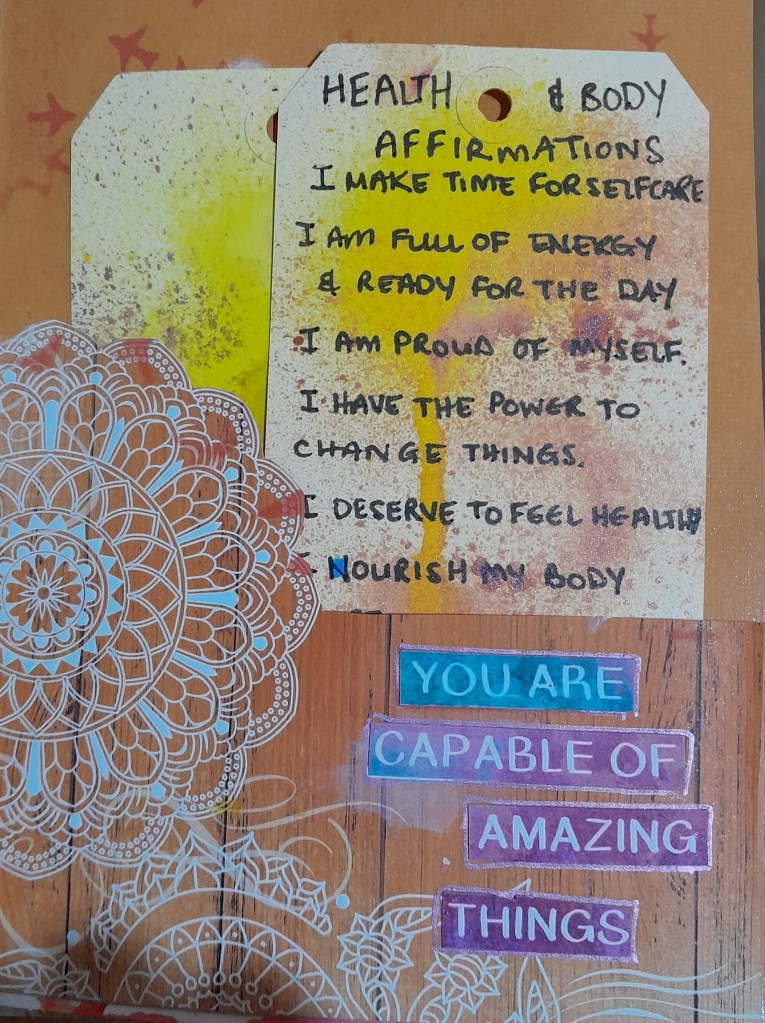 HEALTH & BODY
AFFIRMATIONS
I MAKE TIME FOR SELFCARE
I AM FULL OF ENERGY
& READY FOR THE DAY
I AM PROUD OF MYSELF.
I HAVE THE POWER TO
CHANGE THINGS.
I DESERVE TO FEEL HEALTHY
I NOURISH MY BODY
YOU ARE
CAPABLE OF
AMAZING
THINGS